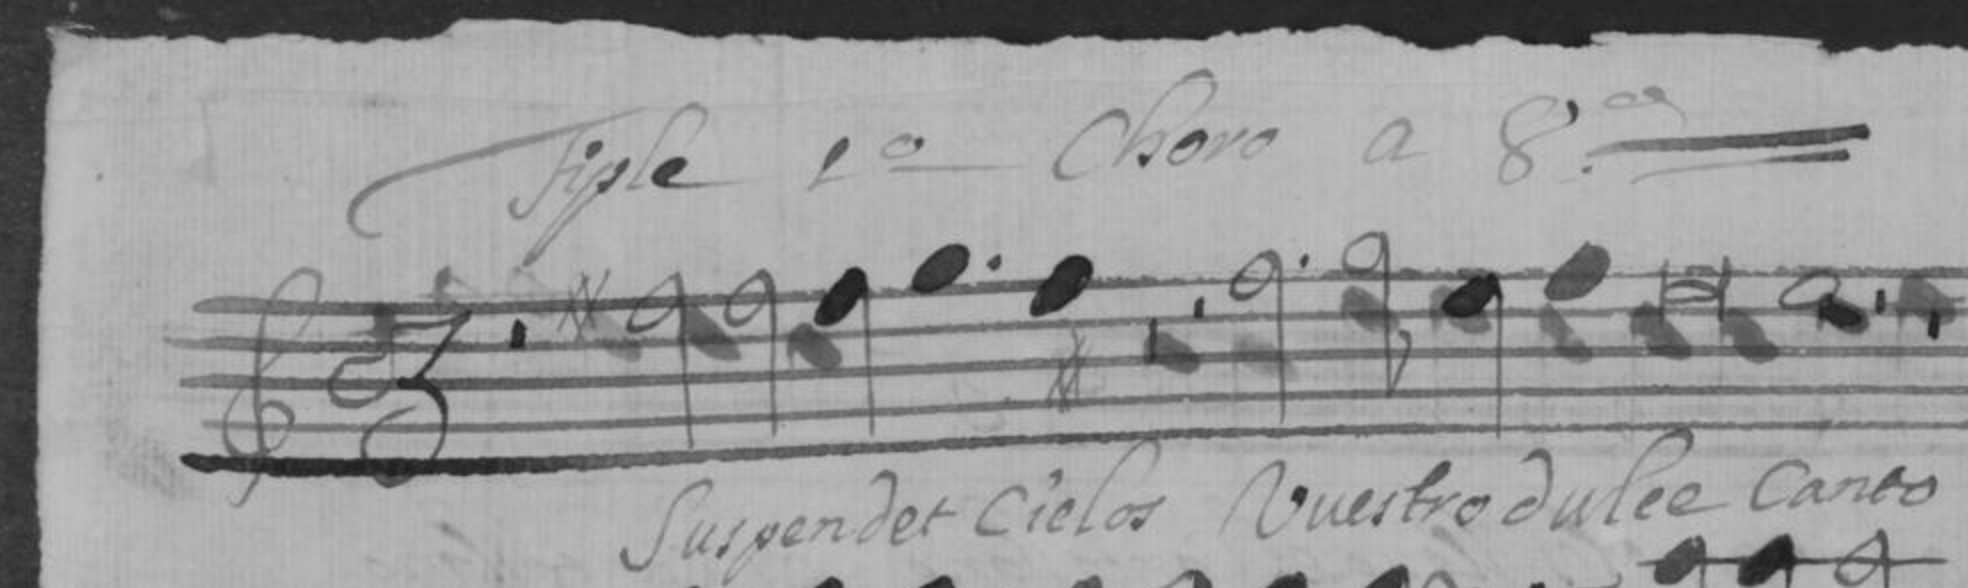 Tiple 1o Choro a 8.as
Suspendet Cielos Vuestro dulce Canto